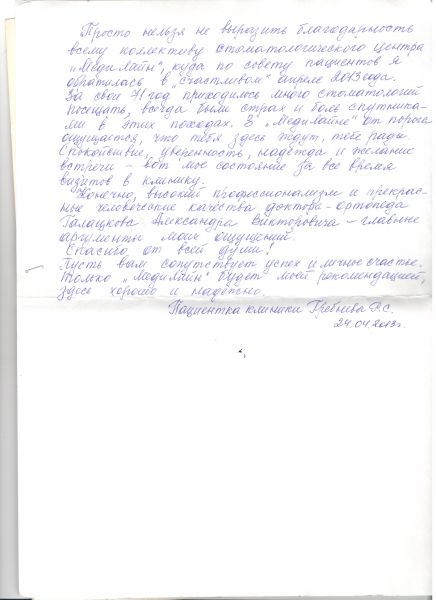 Просто нельзя не выразить благодарность
всему коллективу стоматологического центра
„МедиЛайн“, куда по совету пациентов я
обратилась в „счастливом“ апреле 2013 года.
За свои 41 год приходилось много стоматологий
посещать, всегда были страх и боль спутника-
ми в этих походах. В „МедиЛайне“ от порога
ощущается, что тебя здесь ждут, тебе рады.
Спокойствие, уверенность, надежда и желание
встречи – вот мое состояние за все время
визитов в клинику.
Конечно, высокий профессионализм и прекрас-
ные человеческие качества доктора-ортопеда
Галацкова Александра Викторовича – главные
аргументы моих ощущений.
Спасибо от всей души!
Пусть вам сопутствует успех и личное счастье.
Только „МедиЛайн“ будет моей рекомендацией,
здесь хорошо и надежно.
Пациентка клиники Гребнева Р.С.
24.04.2013г.